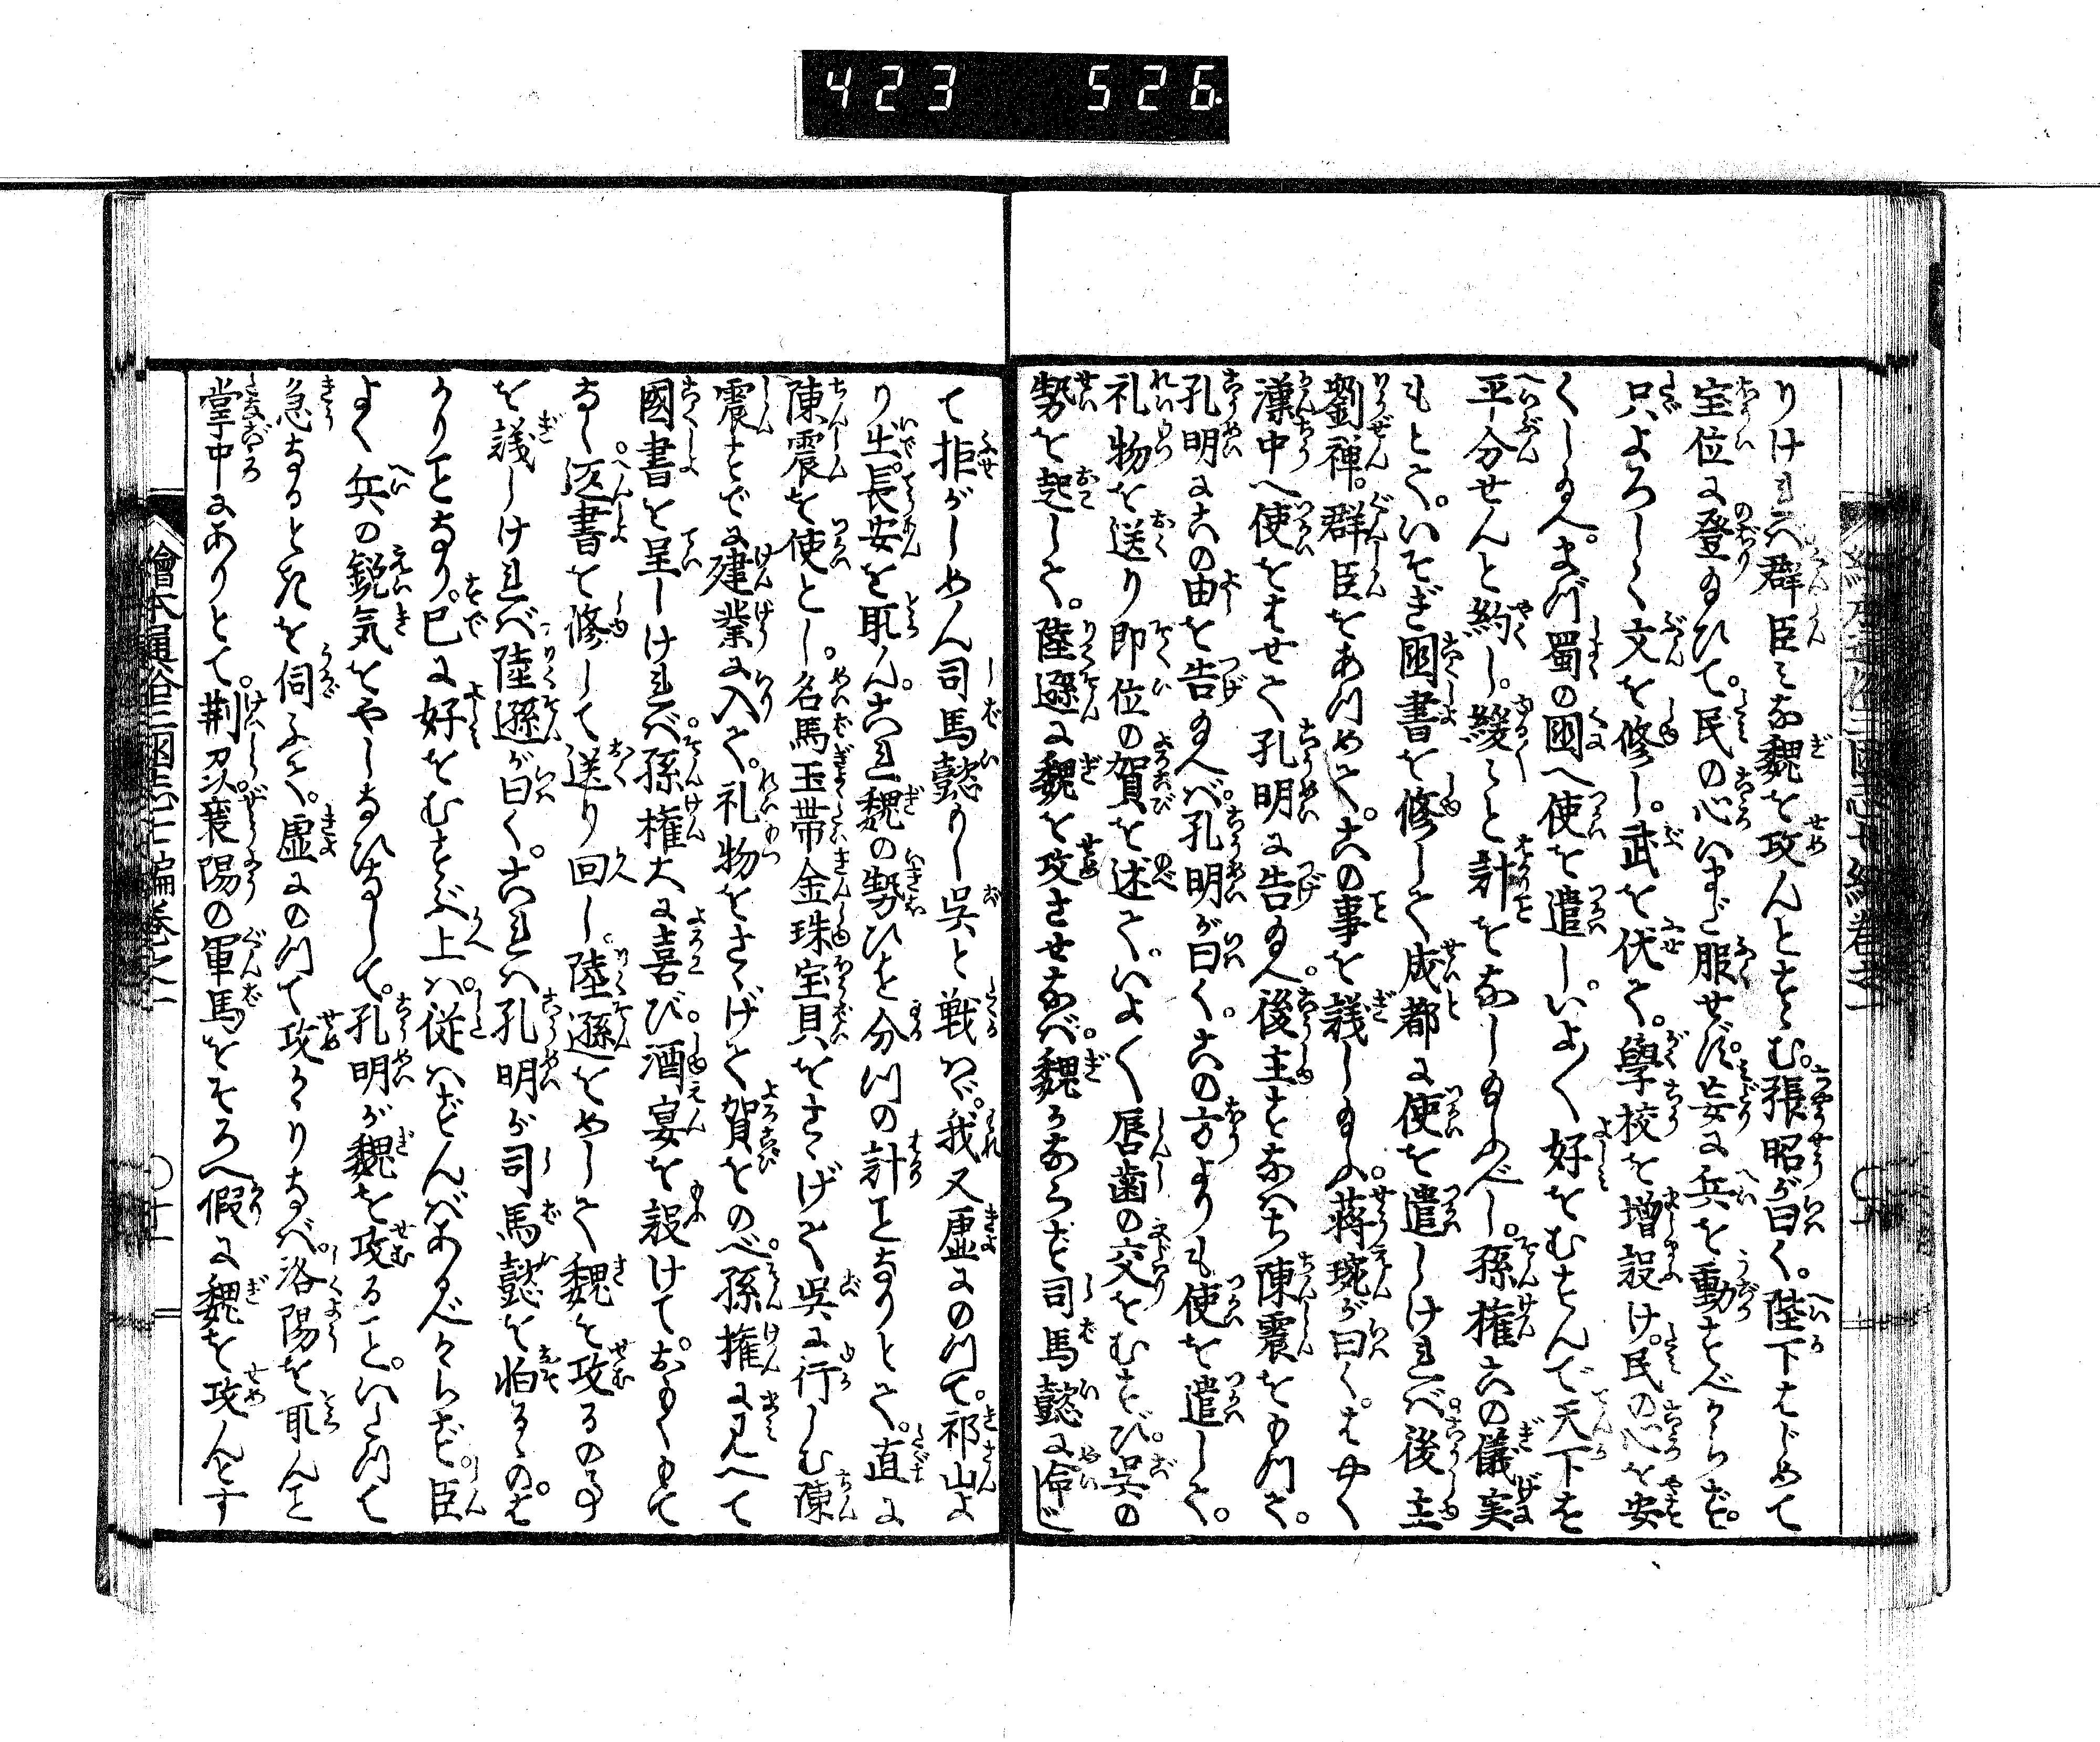 423 526
りければ群臣みな魏を攻んとすゝむ。張昭が曰く。陛下はじめて
宝位に登り玉ひて。民の心いまだ服せず。妄に兵を動すべからず。
只よろしく文を修し。武を伏て。學校を増設け。民の心を安
くし玉へ。まづ蜀の國へ使を遣し。いよ〱好をむすんで天下を
平分せんと約し。緩々と計をなし玉ふべし。孫権此の儀実
もとて。いそぎ國書を修して成都に使を遣しければ。後主
劉禅。群臣をあつめて。此の事を議し玉ふ。蒋琬が曰く。はやく
漢中へ使をはせて孔明に告玉へ。後主すなはち陳震をもつて。
孔明に此の由を告玉へば。孔明が曰く。此の方よりも使を遣して。
礼物を送り即位の賀を述て。いよ〱唇歯の交をむすび。呉の
勢を起して。陸遜に魏を攻させなば。魏かならず司馬懿に命じ
て拒がしめん司馬懿もし呉と戦はゞ。我又虚にのつて。祁山よ
り出。長安を取ん。此れ魏の勢ひを分つの計ことなりとて。直に
陳震を使とし。名馬玉帯金珠宝貝をさゝげて呉に行しむ陳
震すでに建業に入て。礼物をさゝげて賀をのべ。孫権に見へて
國書を呈しければ。孫権大に喜び。酒宴を設けて。あつくもて
なし。返書を修して送り回し。陸遜をめして魏を攻るの事
を議しければ陸遜が曰く。此れは孔明が司馬懿を怕るゝの。は
かりことなり。已に好をむすぶ上は。従はずんばあるべからず臣
よく兵の鋭気をやしなひなして。孔明が魏を攻ること。いたつて
急なるときを伺ふて。虚にのつて攻かゝりなば。洛陽を取んこと
掌中にありとて。荊列襄陽の軍馬をそろへ假に魏を攻んとす
繪本通俗三國志七編巻之一